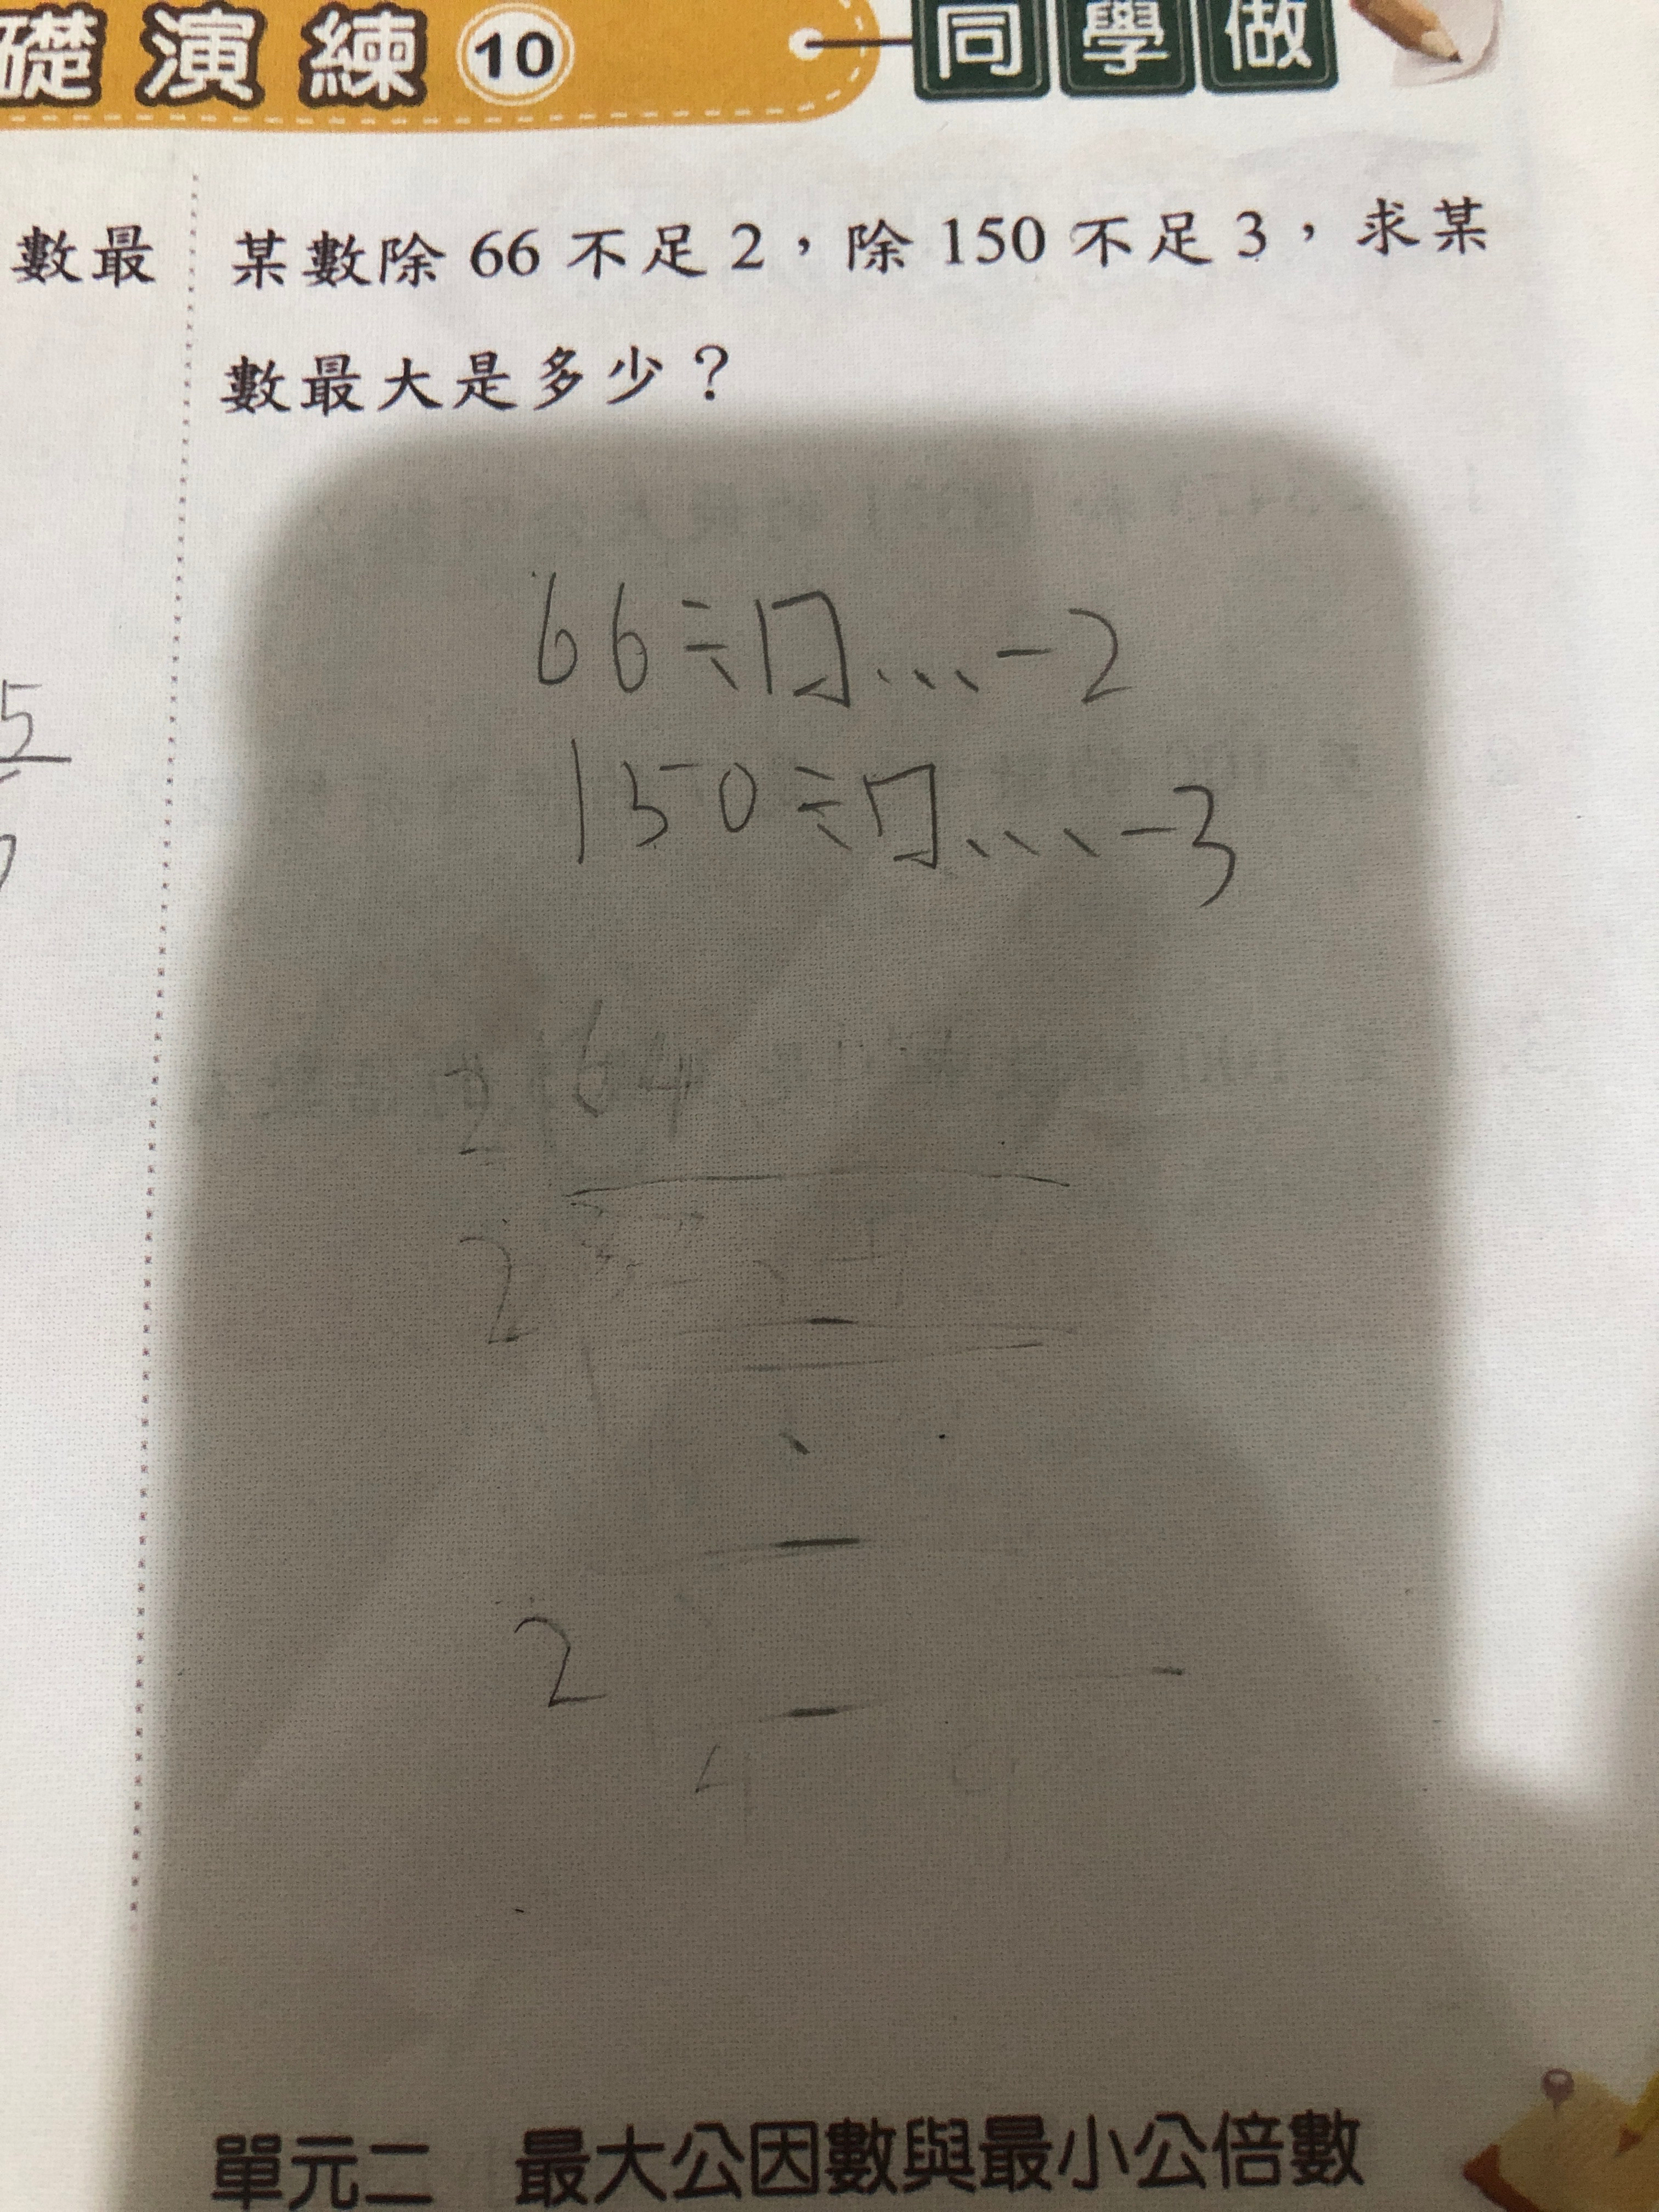 礎演練 10 同學做
數最
某數除 66 不足 2，除 150 不足 3，求某
數最大是多少？
66÷口…-2
5
150÷口…-3
2 64
2 32
2
4
單元二 最大公因數與最小公倍數